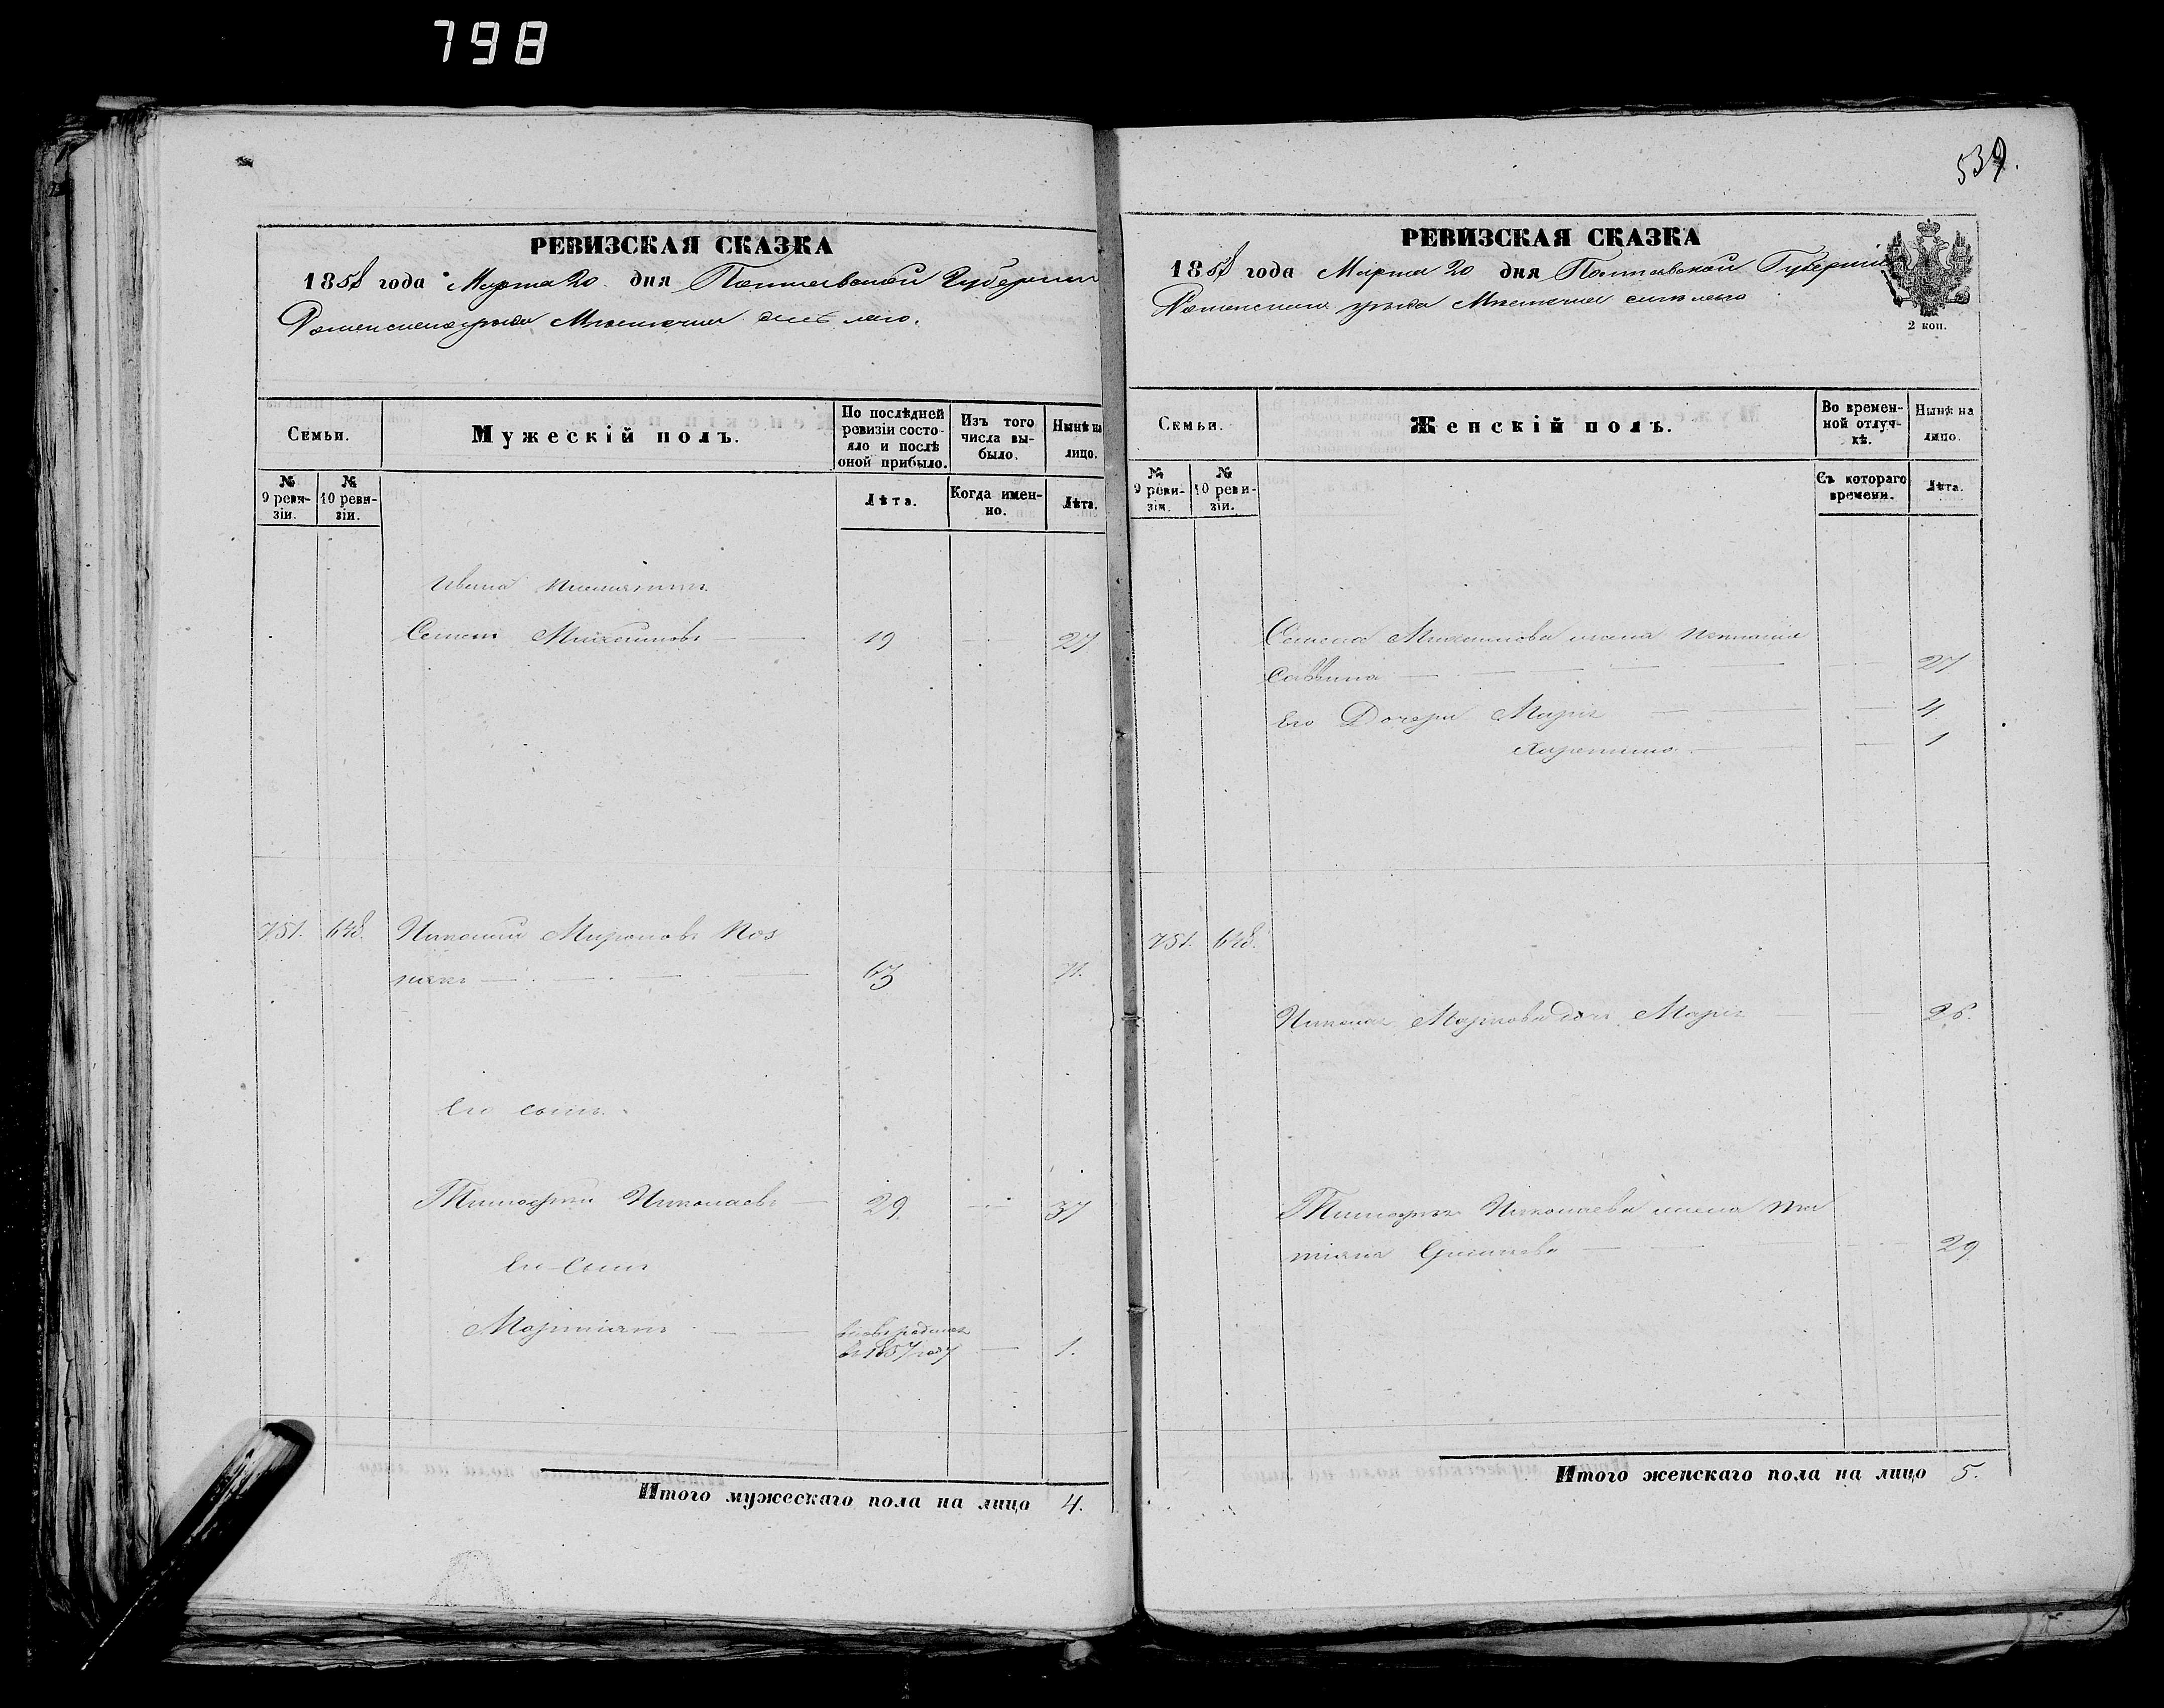 798
РЕВИЗСКАЯ СКАЗКА
1858 года Марта 20 дня Полтавской Губернии
Роменского уезда Местечка
Семьи.
Мужескій полъ.
По послѣдней ревизіи состо-
яло и послѣ
оной прибыло.
Изъ того
числа вы-
было.
Нынѣ на
лицо.
№
9 реви-
зіи.
№
10 реви-
зіи.
Лѣта.
Когда имен-
но.
Лѣта.
Ивана
Семенъ 19 27
751. 648. Николай Мироновъ Поз
някъ 63 71.
Его сынъ
Тимофей Николаевъ 29. 37
Его Сынъ
въ 1857 году 1.
Итого мужескаго пола на лицо 4.
539.
РЕВИЗСКАЯ СКАЗКА
1858 года Марта 20 дня Полтавской Губерніи
Роменского уезда Местечка
2 коп.
Семьи.
Женскій полъ.
Во времен-
ной отлуч-
кѣ.
Нынѣ на
лицо.
№
9 реви-
зіи.
№
10 реви-
зіи.
Съ котораго
времени.
Лѣта.
Семена жена
Саввина 27
Его Дочери Марія 4
Харитина 1
751. 648.
Николая дочь Марія 26.
Тимофея Николаева жена Та
тіяна 29
Итого женскаго пола на лицо 5.